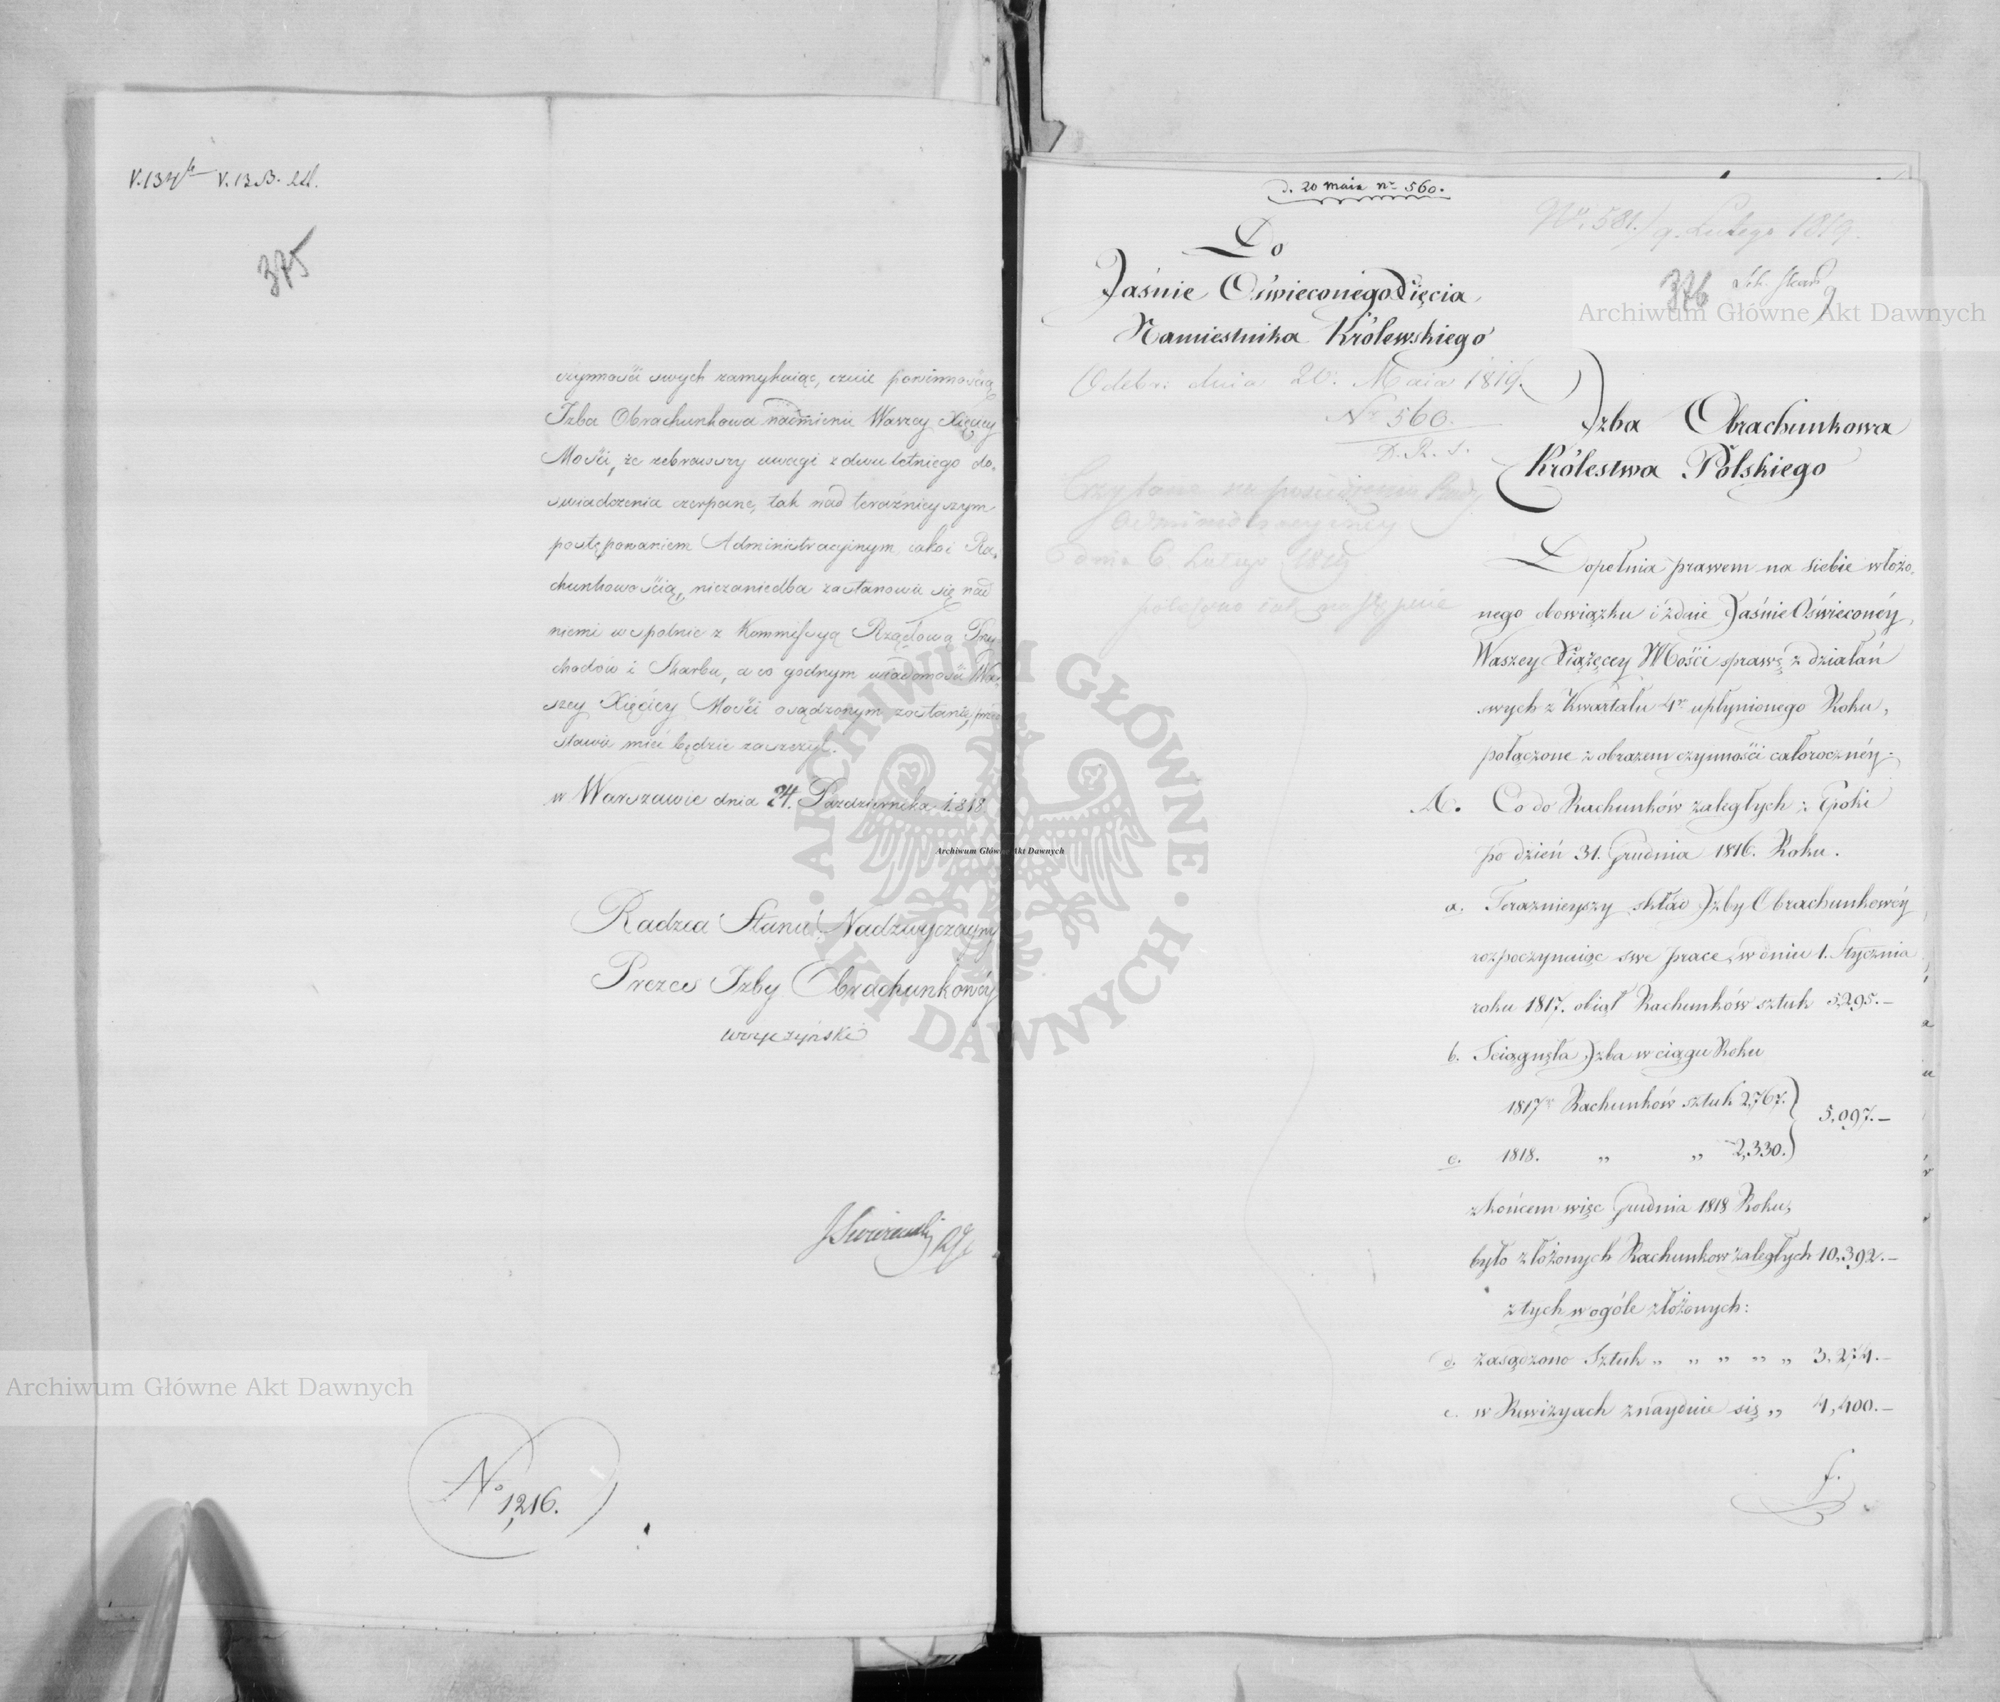 375
czynności swych zamykaiąc, czuie powinnością
Izba Obrachunkowa nadmienić Waszey Xiążęcey
Mości, że zebrawszy uwagi z dwu letniego do-
świadczenia czerpane, tak nad teraźnieyszym
postępowaniem Administracyinym, iako i Ra-
chunkowością, niezaniedba zastanowić się nad
niemi wspolnie z Kommissyą Rządową Przy-
chodów i Skarbu, a co godnym wiadomości Wa-
szey Xiążęcey Mości osądzonym zostanie, przed-
stawić mieć będzie zaszczyt.
w Warszawie dnia 24. Pazdziernika 1.818
Radzca Stanu Nadzwyczayny
Prezes Izby Obrachunkowéy
No 1,216.
d. 20 maia nr 560.
No. 581. 9. Lutego 1819.
376
Do
Jaśnie Oświeconego Xięcia
Namiestnika Królewskiego
Odebr: dnia 20. Maia 1819.
Nr 560.
D. R. S.
Czytane na posiedzeniu Rady
Administracyiney
dnia 6. Lutego 1819
Izba Obrachunkowa
Królestwa Polskiego
Dopełnia prawem na siebie włożo-
nego obowiązku i zdaie Jaśnie Oświeconéy
Waszey Xiążęcey Mości sprawę z działań
swych z Kwartału 4go upłynionego Roku,
połączone z obrazem czynności całorocznéy:
A. Co do Rachunków zaległych z Epoki
po dzień 31. Grudnia 1816. Roku.
a. Teraznieyszy skład Izby Obrachunkowéy
rozpoczynaiąc swe prace, w dniu 1. Stycznia
roku 1817. obiął Rachunków sztuk 5,295.—
b. Sciągnęła Izba w ciągu Roku
1817o Rachunków sztuk 2,767.
5,097.—
c. 1818. „ „ 2,330.
z końcem więc Grudnia 1818 Roku,
było złożonych Rachunkow zaległych 10,392.—
z tych w ogóle złożonych:
d. zasądzono Sztuk „ „ „ „ „ 3,274.—
e. w Rewizyach znayduie się „ 4,400.—
f.
Archiwum Główne Akt Dawnych
Archiwum Główne Akt Dawnych
Archiwum Główne Akt Dawnych
ARCHIWUM GŁÓWNE · AKT DAWNYCH ·